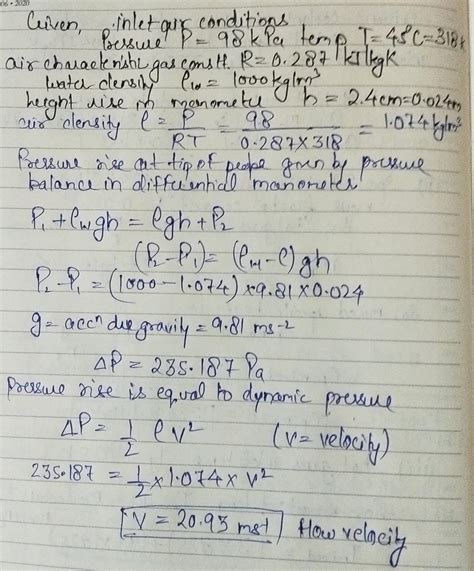 06 • 2020
Given, inlet air conditions
Pressure P = 98 kPa temp T = 45°C = 318k
air characteristic gas constt. R = 0.287 kJ/kgK
water density ρw = 1000 kg/m³
height rise in manometer h = 2.4cm = 0.024m
air density ρ = P/RT = 98/0.287×318 = 1.074 kg/m³
Pressure rise at tip of probe given by pressure
balance in differential manometer
P₁ + ρwgh = ρgh + P₂
(P₂-P₁) = (ρw-ρ)gh
P₂-P₁ = (1000-1.074)×9.81×0.024
g = accⁿ due gravity = 9.81 ms⁻²
ΔP = 235.187 Pa
Pressure rise is equal to dynamic pressure
ΔP = 1/2 ρv² (v = velocity)
235.187 = 1/2 ×1.074× v²
V = 20.93 ms⁻¹ flow velocity